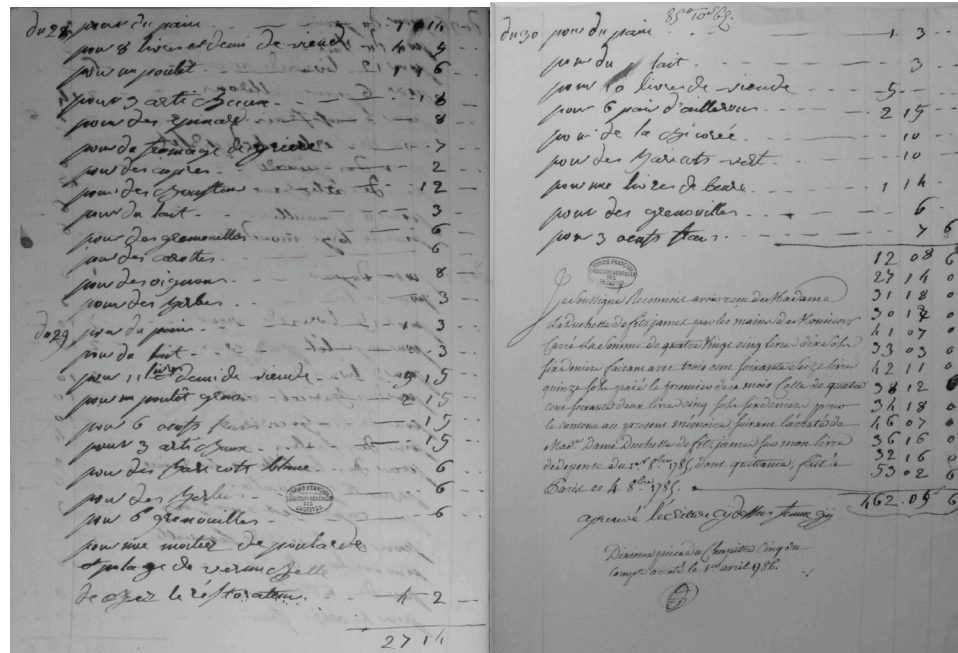 du 28 pour du pain - - - 1 4
pour 8 livres et demi de viende - 4 5
pour un poulet - - - 1 6
pour 3 articheaux - - - 8
pour des epinard - - - 8
pour du fromage de griere - - 7
pour des capres - - - 2
pour des - - 12
pour du lait - - - 3
pour des grenouilles - 6
pour des carottes - - 6
pour des oignons - - 8
pour des herbes - - - 3
du 29 pour du pain - - - 1 3
pour du lait - - - 3
pour 11 livres demi de viende - 5 15
pour un poulet gras - - 2 15
pour 6 oeufs frais - - 15
pour 3 articheaux - - 15
pour des haricots blanc - 6
pour des herbes - - 6
pour 6 grenouilles - - 6
pour une moitier de poularde
et potage de vermichelle
de chez le réstorateur - 4 2
27 14
85
du 30 pour du pain - - - 1 3
pour du lait - - - 3
pour 10 livres de viende - 5
pour 6 pair d'aillerons - 2 15
pour de la chicorée - - 10
pour des haricots vert - - 10
pour une livres de beure - 1 14
pour des grenouilles - - 6
pour 3 oeufs frais - - 7 6
12 08 6
27 14 0
31 18 0
30 0
41 07 0
33 03 0
42 11 0
38 12 6
34 18 0
46 07 0
36 16 0
32 16 0
53 02 6
462 05 6
Je soussigné Reconnois avoir reçu de Madame
La Duchesse de fitzjames par les mains de Monsieur
Carré La somme de quatre vingt cinq livre dix sols
six deniers faisant avec trois cent soixante seize livre
quinze sols payé le premier de ce mois Celle de quatre
cent soixante deux livre cinq sols six deniers pour
le contenu au present mémoire, suivant l'arrêté de
Mad.e Dame Duchesse de fitzjames sur mon livre
de depense du 1er 8bre 1785 dont quittance, fait à
Paris ce 4. 8bre 1785.
aprouvé l'ecriture cy dessus
piece du Chapitre Cinq du
Compte arrêté le 1er avril 1786.